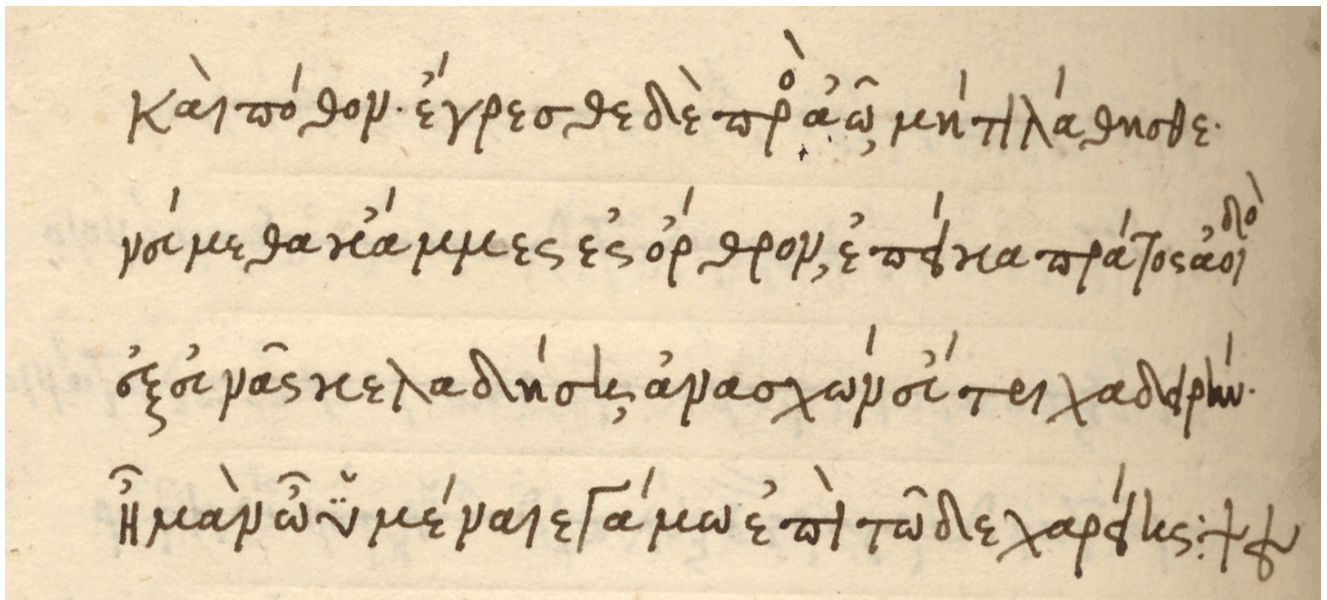 Καὶ πόθον· ἔγρεσθε δὲ πρὸ ἀῶ, μήτι λάθησθε·
νεύμεθα κἄμμες ἐς ὄρθρον, ἐπεί κα πράτος ἀοιδὸ
ἐξ εὐνᾶς κελαδήση, ἀνασχών εὔτριχα δειρήν·
Ἦ μὰν ὦ ὑμέναιε γάμω ἐπὶ τῶδε χαρείης: